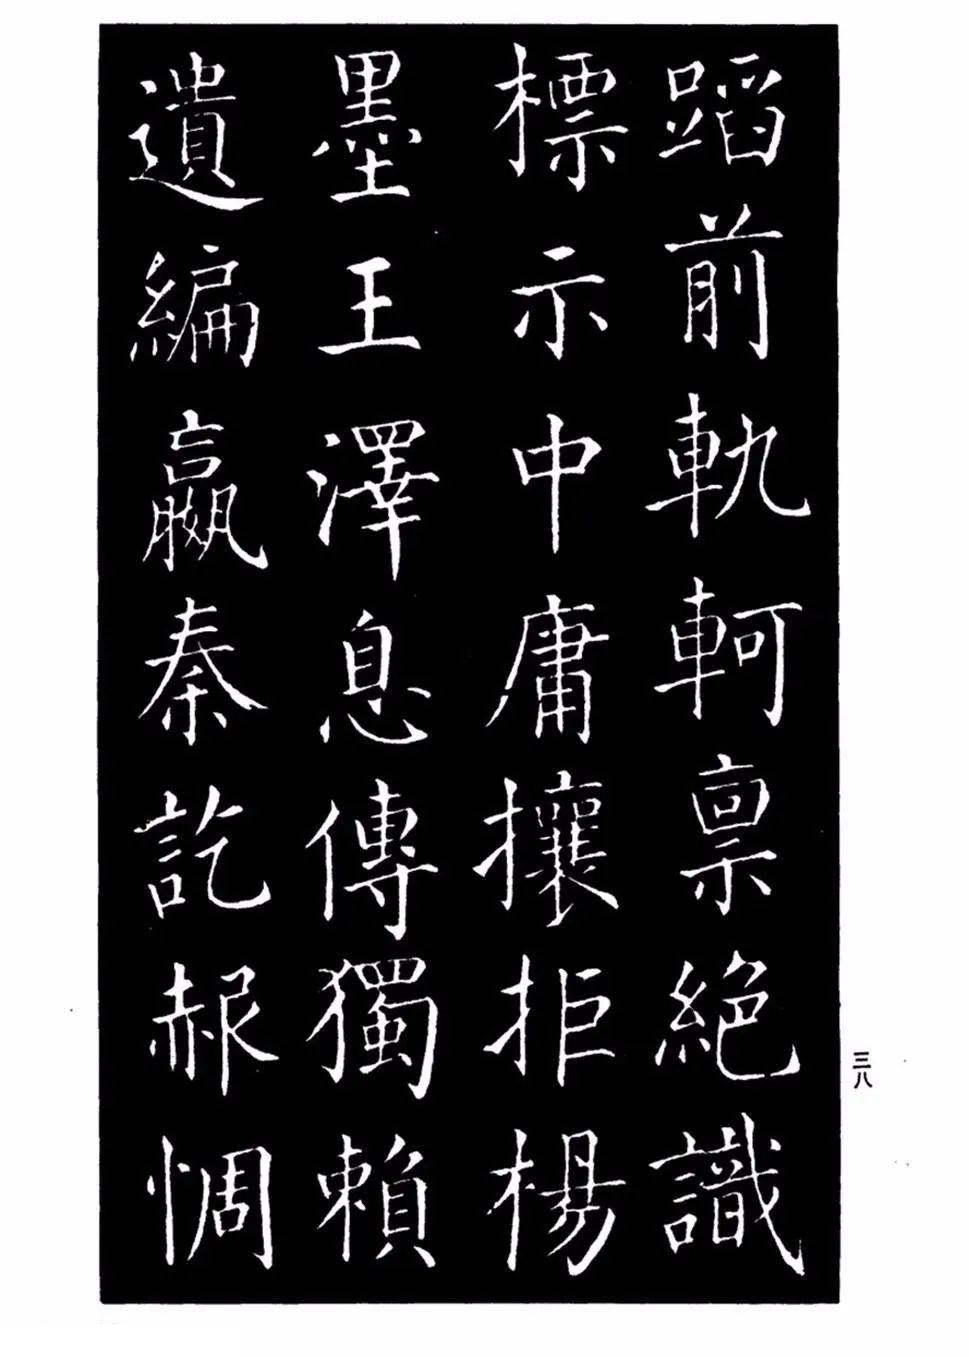 蹈前軌軻禀絕識
標示中庸攘拒楊
墨王澤息傳獨賴
遺編嬴秦訖赧惆
三八